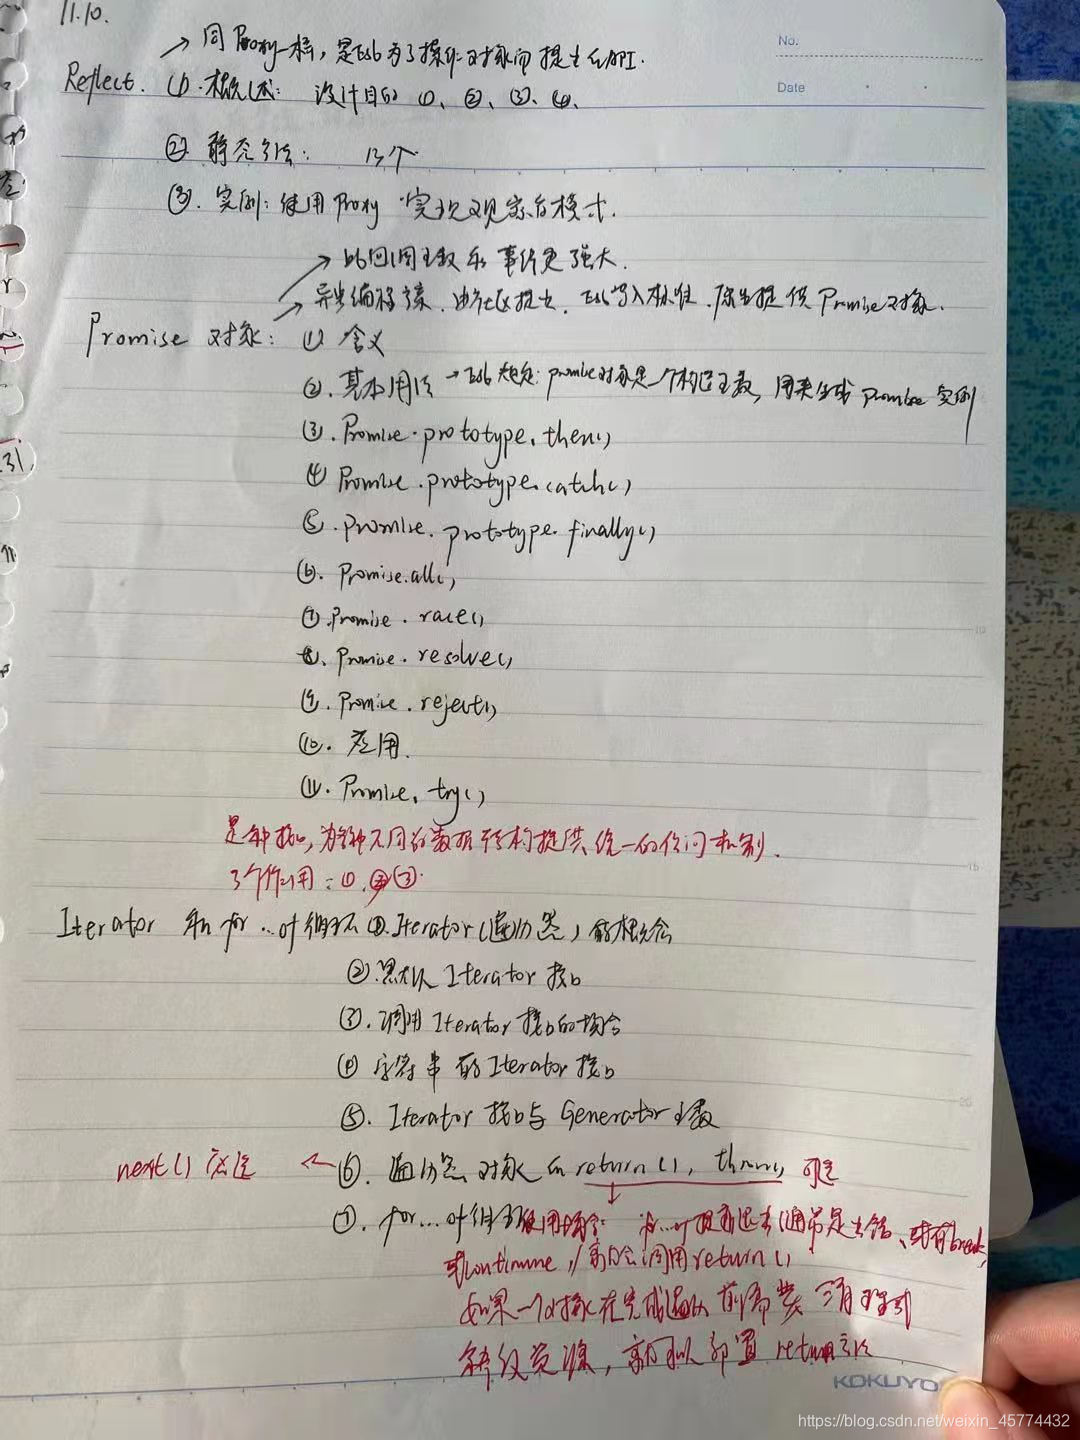 11.10.
No.
→ 同Proxy一样, 是ES6为了操作对象而提出的API.
Date
Reflect. ①.概述: 设计目的 ①、②、③、④、
②. 静态方法: 13个
③. 实例: 使用Proxy 实现观察者模式.
→ 比回调函数和事件更强大.
→ 异步编程方案. 由社区提出. ES6写入标准. 原生提供Promise对象.
Promise 对象: ① 含义
②. 基本用法 → ES6规定: promise对象是一个构造函数, 用来生成 promise 实例
③. Promise.prototype.then()
④ Promise.prototype.catch()
⑤. promise.prototype.finally()
⑥. Promise.all()
⑦. Promise.race()
⑧. Promise.resolve()
⑨. Promise.reject()
⑩. 应用.
⑪. Promise.try()
是一种接口, 为各种不同的数据结构提供统一的访问机制.
3个作用: ①.②③.
Iterator 和 for...of循环 ①. Iterator(遍历器)的概念
②. 默认 Iterator 接口
③. 调用 Iterator 接口的场合
④ 字符串的 Iterator 接口
⑤. Iterator 接口与 Generator 函数
next() 必选 ← ⑥. 遍历器对象的 return(), throw() 可选
⑦. for...of循环 使用场合: for...of提前退出(通常是出错、或有break,
或continue)就会调用return()
如果一个对象在完成遍历前需要清理或
释放资源, 就可以部署 return方法
KOKUYO
https://blog.csdn.net/weixin_45774432